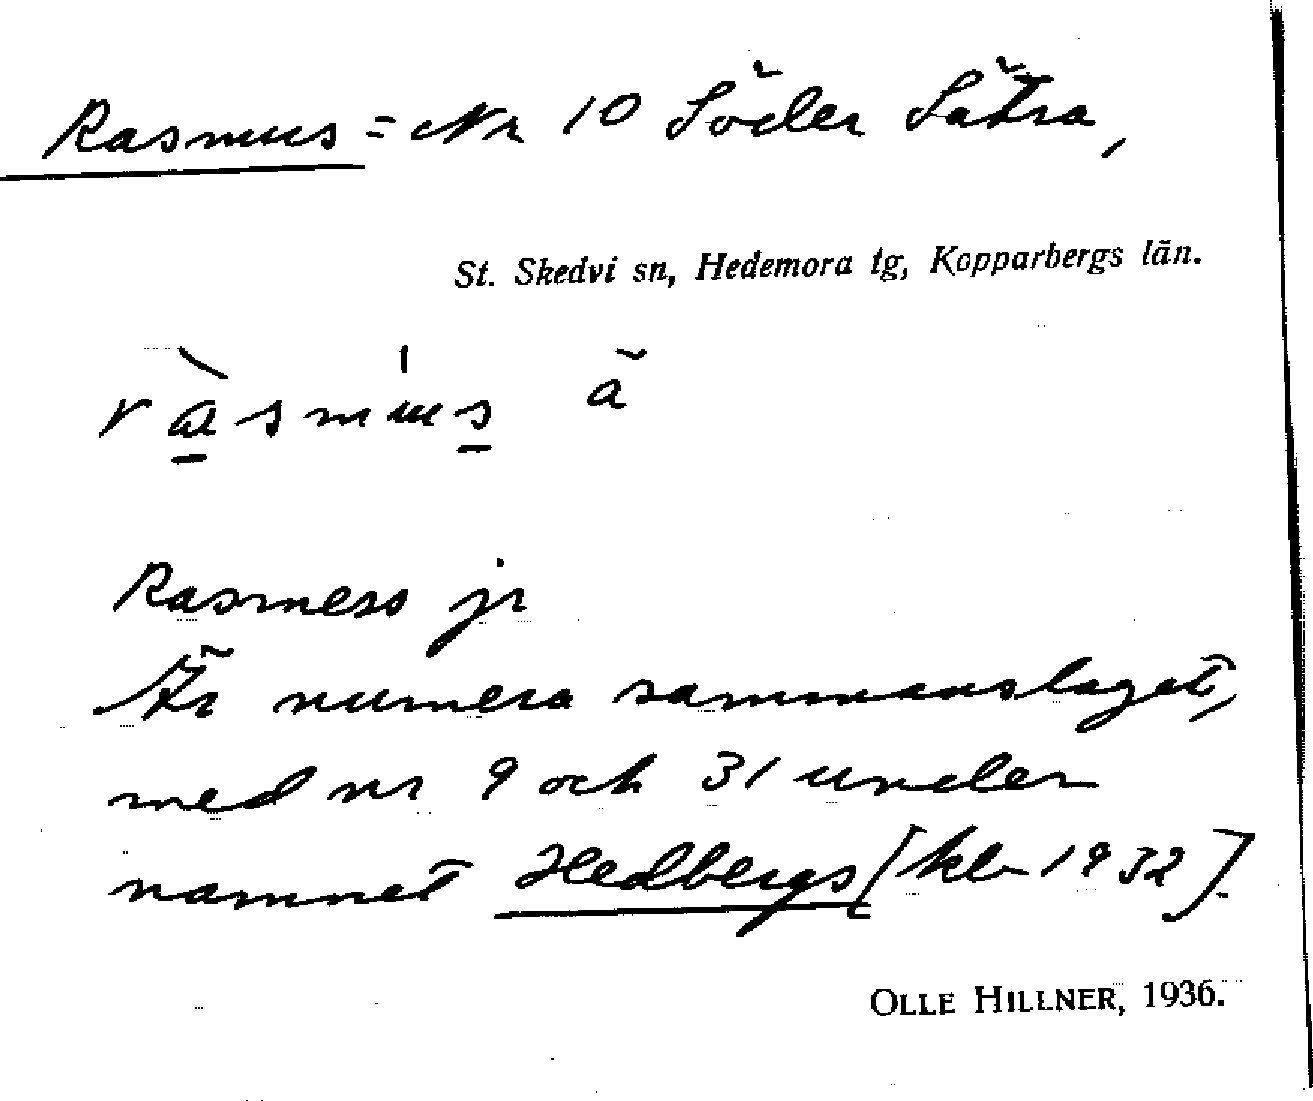 Rasmus = Nr 10 Söder Sätra,
St. Skedvi sn, Hedemora tg, Kopparbergs län.
ràsmus ä
Rasmess jr
Är numera sammanslaget,
med nr 9 och 31 under
namnet Hedbergs [kl 1932].
OLLE HILLNER, 1936.